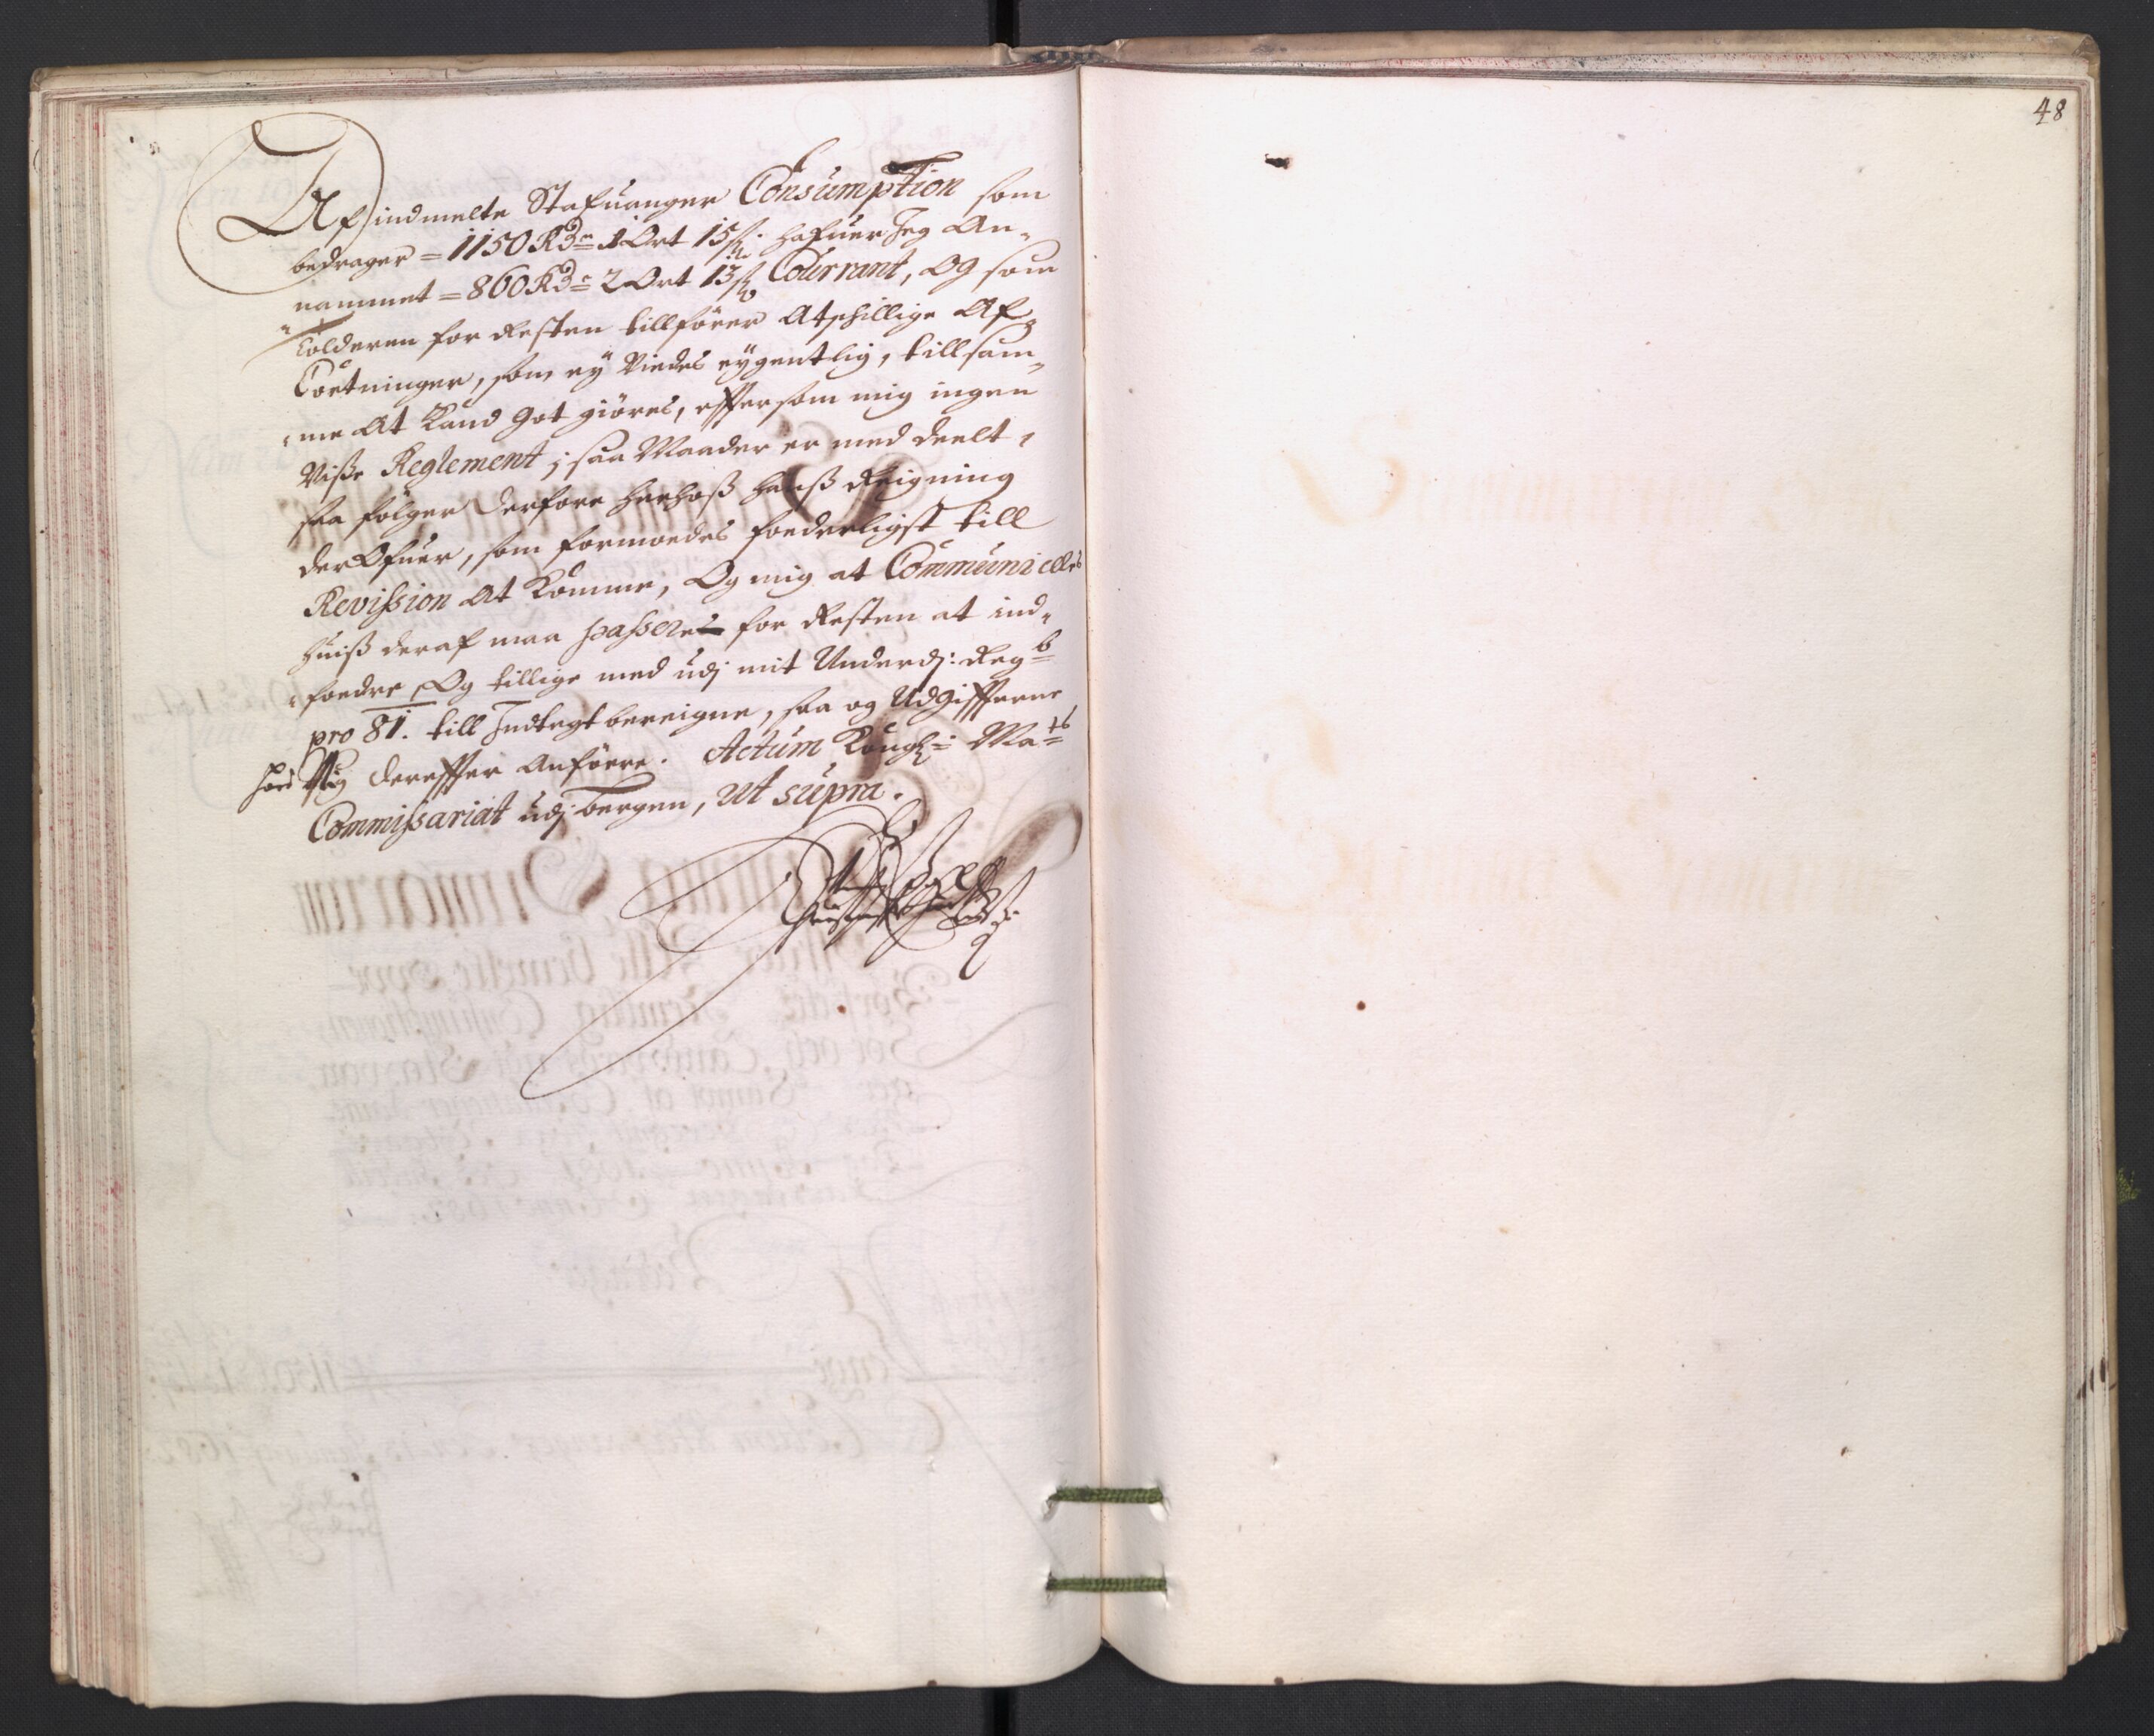 48
Af indmelte Stafuanger Consumption som
bedrager = 1150 Rdr 1 Ort 15 ß: hafuer Jeg An-
nammet = 860 Rdr 2 Ort 13 ß Courrant, Og som
Tolderen for Resten tillfører Atschillige Af-
Cortninger, som ey Viedes eygentlig, till sam-
me At Kand Got giøres, effersom mig ingen
Viße Reglement i saa Maader er med deelt,
saa følger derfore herhoß hanß Reigning
der Ofuer, som formodes forderligst till
Revißion At Komme, Og mig at Communiceres
huiß deraf maa passeres for Resten at ind-
fordre, Og tillige med udj mit Underd: Regb
pro 81. till Indtegt bereigne, saa og Udgiffterne
Mig dereffter Anføere. Actum Kongl: Mats
Commißariat udj bergen, ut supra.